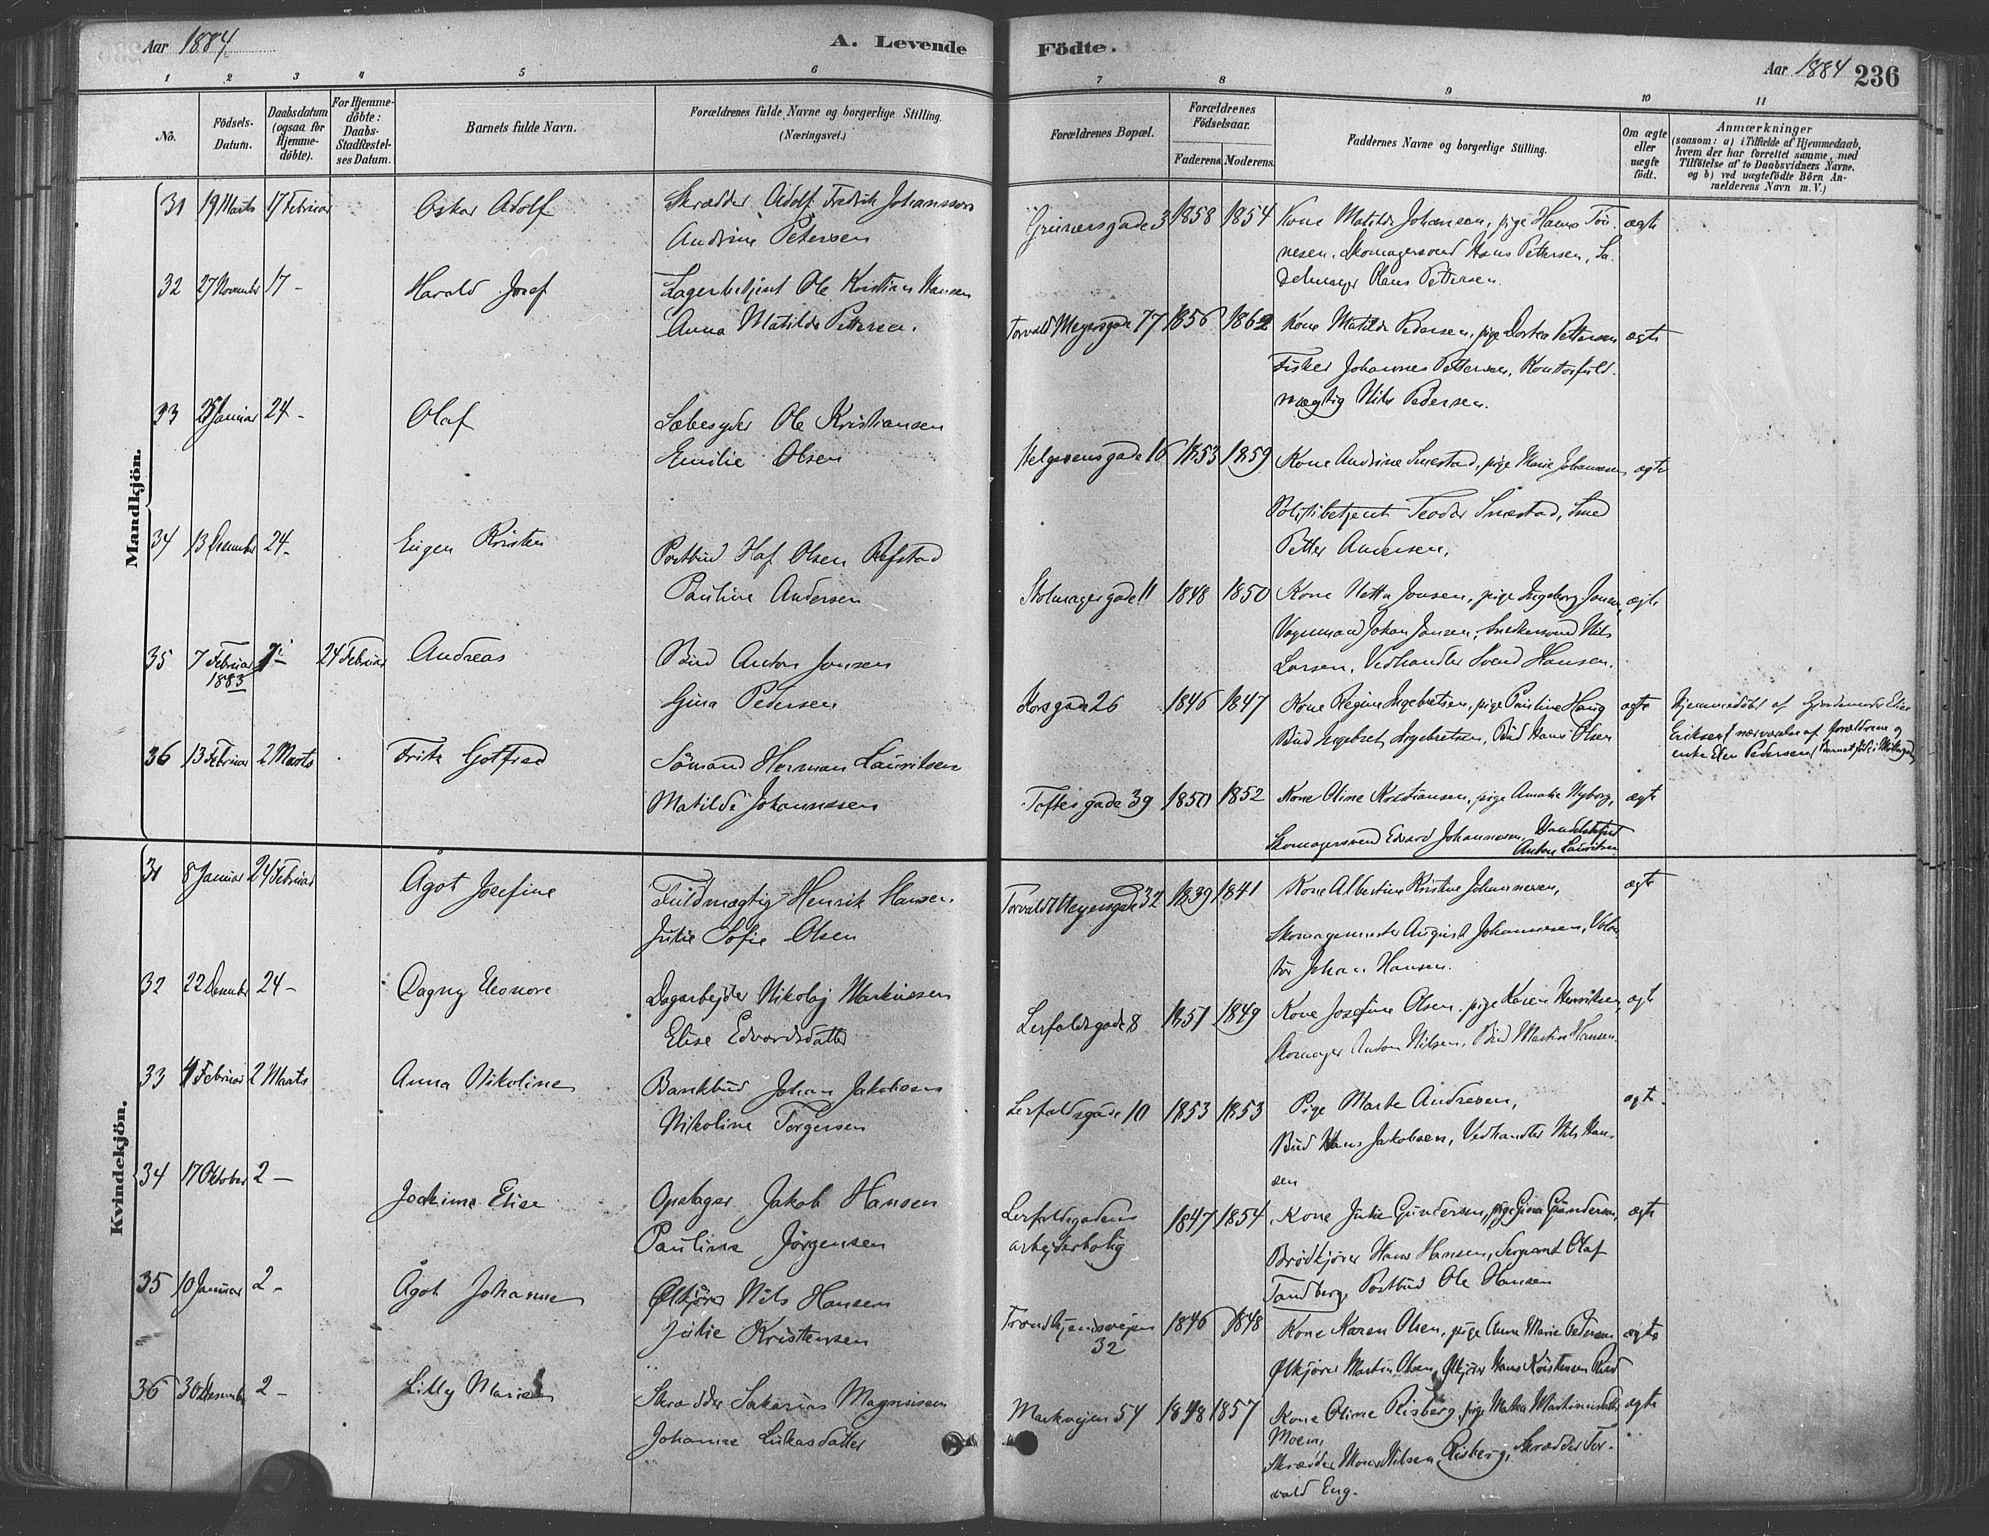 Aar 1884
A. Levende
Födte.
Aar 1884
236
1 2 3 4 5 6 7 8 9 10 11
No.
Födsels-Datum.
Daabsdatum (ogsaa for Hjemme-döbte).
For Hjemme-döbte: Daabs-Stadfæstel-ses Datum.
Barnets fulde Navn.
Forældrenes fulde Navne og borgerlige Stilling. (Næringsvei.)
Forældrenes Bopæl.
Forældrenes Födselsaar.
Faderens. Moderens.
Faddernes Navne og borgerlige Stilling.
Om ægte eller uægte födt.
Anmærkninger
(saasom: a) i Tilfælde af Hjemmedaab, hvem der har forrettet samme, med Tilföielse af to Daabsvidners Navne. og b) ved uægtefödte Börn An-melderens Navn m. V.)
Mandkjön.
31 19 Marts 17 Februar Oskar Adolf Skrædder Adolf Fredrik Johansson
Andrine Petersen
Grünersgade 3 1858 1854 Kone Matilde Johansen, pige Hanna Tön-
nesen, Skomagersvend Hans Pettersen, Sa-
delmager Olaus Pettersen.
ægte
32 27 November 17 - Harald Josef Lagerbetjent Ole Kristian Hansen
Anna Matilde Pettersen.
Torvald Meyersgade 77 1856 1862 Kone Matilde Pedersen, pige Dortea Pettersen
Fisker Johannes Pettersen, Kontorfuld-
mægtig Nils Pedersen.
ægte
33 25 Januar 24 - Olaf Sæbesyder Ole Kristiansen
Emilie Olsen
Helgesensgade 16 1853 1859 Kone Andrine Smestad, pige Marie Johansen
Politibetjent Teodor Smestad, Smed
Petter Andersen.
ægte
34 13 Desember 24 - Eugen Kristen Postbud Olaf Olsen Refstad
Pauline Andersen
Stolmagergade 11 1848 1850 Kone Netta Jonsen, pige Ingeborg Jonsen,
Vognmand Johan Jonsen, Snedkersvend Nils
Larsen, Vedhandler Svend Hansen.
ægte
35 7 Februar 1883 24 Februar Andreas Bud Anton Jonsen
Gina Pedersen
Korsgade 26 1846 1847 Kone Regine Ingebretsen, pige Pauline Haug
Bud Ingebret Ingebretsen, Bud Hans Olsen
ægte
Hjemmedöbt af Gjordemoder Elise
Eriksen i nærværelse af forældrene og
enke Elen Pedersen
36 13 Februar 2 Marts Fritz Gotfred Sömand Herman Lauritsen
Matilde Johannesen
Toftesgade 39 1850 1852 Kone Oline Kristiansen, pige Amalie Nyborg,
Skomagersvend Edvard Johannesen, Handelsbetjent
Anton Lauritsen
ægte
Kvindekjön.
31 8 Januar 24 Februar Ågot Josefine Fuldmægtig Henrik Hansen.
Julie Sofie Olsen
Torvald Meyersgade 32 1839 1841 Kone Albertine Kristine Johannesen,
Skomagermester August Johannesen, Volon-
tör Johan Hansen.
ægte
32 22 Desember 24 - Dagny Leonore Dagarbejder Nikolaj Markussen
Elise Edvardsdatter
Lerfaldsgade 8 1851 1849 Kone Josefine Olsen, pige Karen Henriksen,
Skomager Anton Nilsen, Bud Martin Hansen.
ægte
33 4 Februar 2 Marts Anna Nikoline Bankbud Johan Jakobsen
Nikoline Torgersen
Lerfaldsgade 10 1853 1853 Pige Marte Andresen,
Bud Hans Jakobsen, Vedhandler Nils Han-
sen
ægte
34 17 Oktober 2 - Joakime Elise Opslager Jakob Hansen
Pauline Jörgensen
Lerfaldsgadens
arbejderbolig
1847 1854 Kone Julie Gundersen, pige Gina Gundersen,
Brödkjörer Hans Hansen, Sergeant Olaf
Tandberg, Postbud Ole Hansen
ægte
35 10 Januar 2 - Ågot Johanne Ölkjörer Nils Hansen
Julie Kristensen
Trondhjemsvejen
32
1846 1848 Kone Karen Olsen, pige Anne Marie Pedersen
Ölkjörer Martin Olsen, Ölkjörer Hans Kristensen Rud
ægte
36 30 Desember 2 - Lilly Marie Skrædder Sakarias Magnussen
Johanne Lukasdatter
Markvejen 54 1848 1857 Kone Oline Risberg, pige Matea Martinusdatter
Moen,
Skrædder Mons Nilsen Risberg, Skrædder Tor-
vald Eng.
ægte